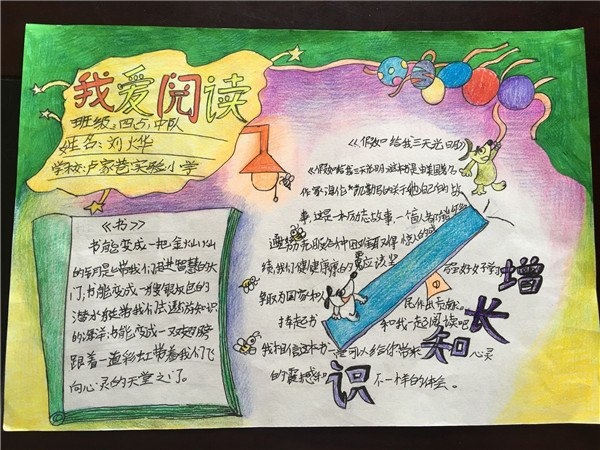 我爱阅读
班级:四(5)中队
姓名:刘烨
学校:卢家巷实验小学
《书》
书能变成一把金灿灿
的
月是带我们走进智慧的大
门,书能变成一艘银灰色的
潜水艇带我们去遨游知识
的海洋,书能变成一双翅膀
跟着一道彩虹带着我们飞
向心灵的天堂之门。
《假如给我三天光明》
《假如给我三天光明》这本书是由美国著名
作家海伦·凯勒写的关于他自己的故
事,这是一本励志故事,一个盲人
通
结,我们健健康康的
应该
好好学习
取为国家和人
民作出
捧起书
和我一起阅读吧
我相信这本书一
可以给你带来
心灵
的震撼和
不一样的体会。
增
长
知
识